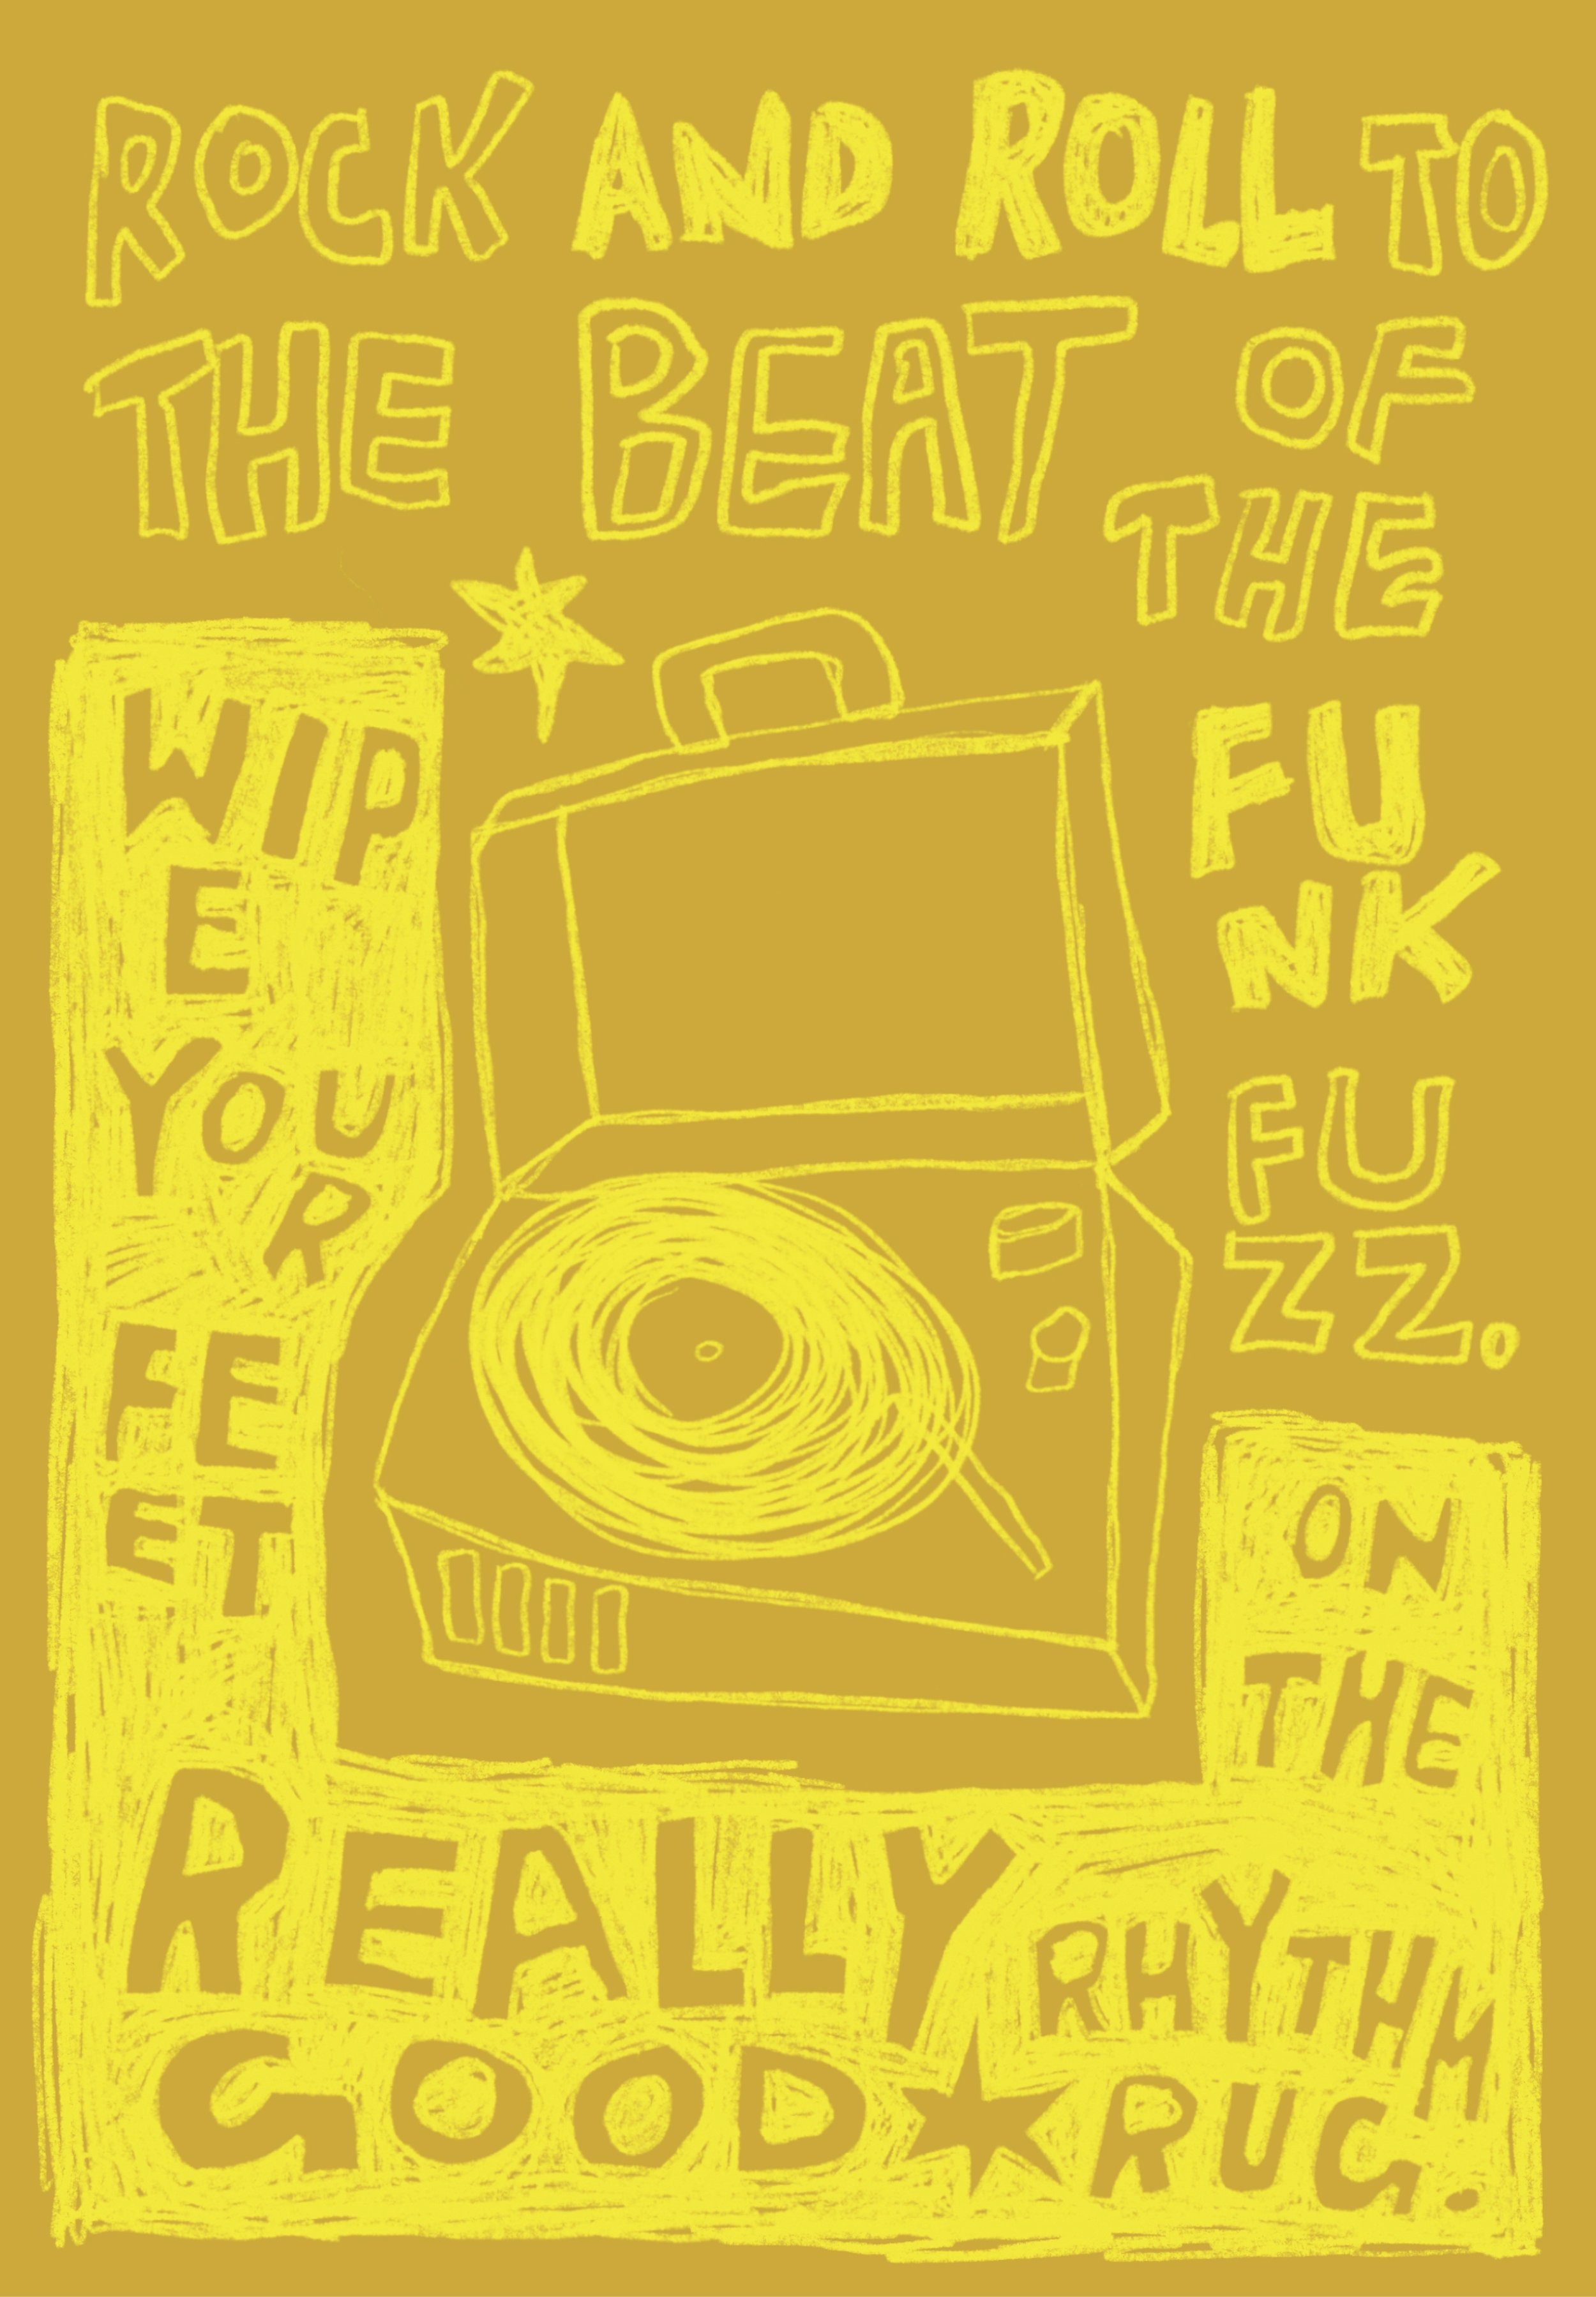 ROCK AND ROLL TO
THE BEAT OF
THE
FU
NK
FU
ZZ.
WIP
E
YOU
R
FE
ET
ON
THE
REALLY
GOOD
RHYTHM
RUG.